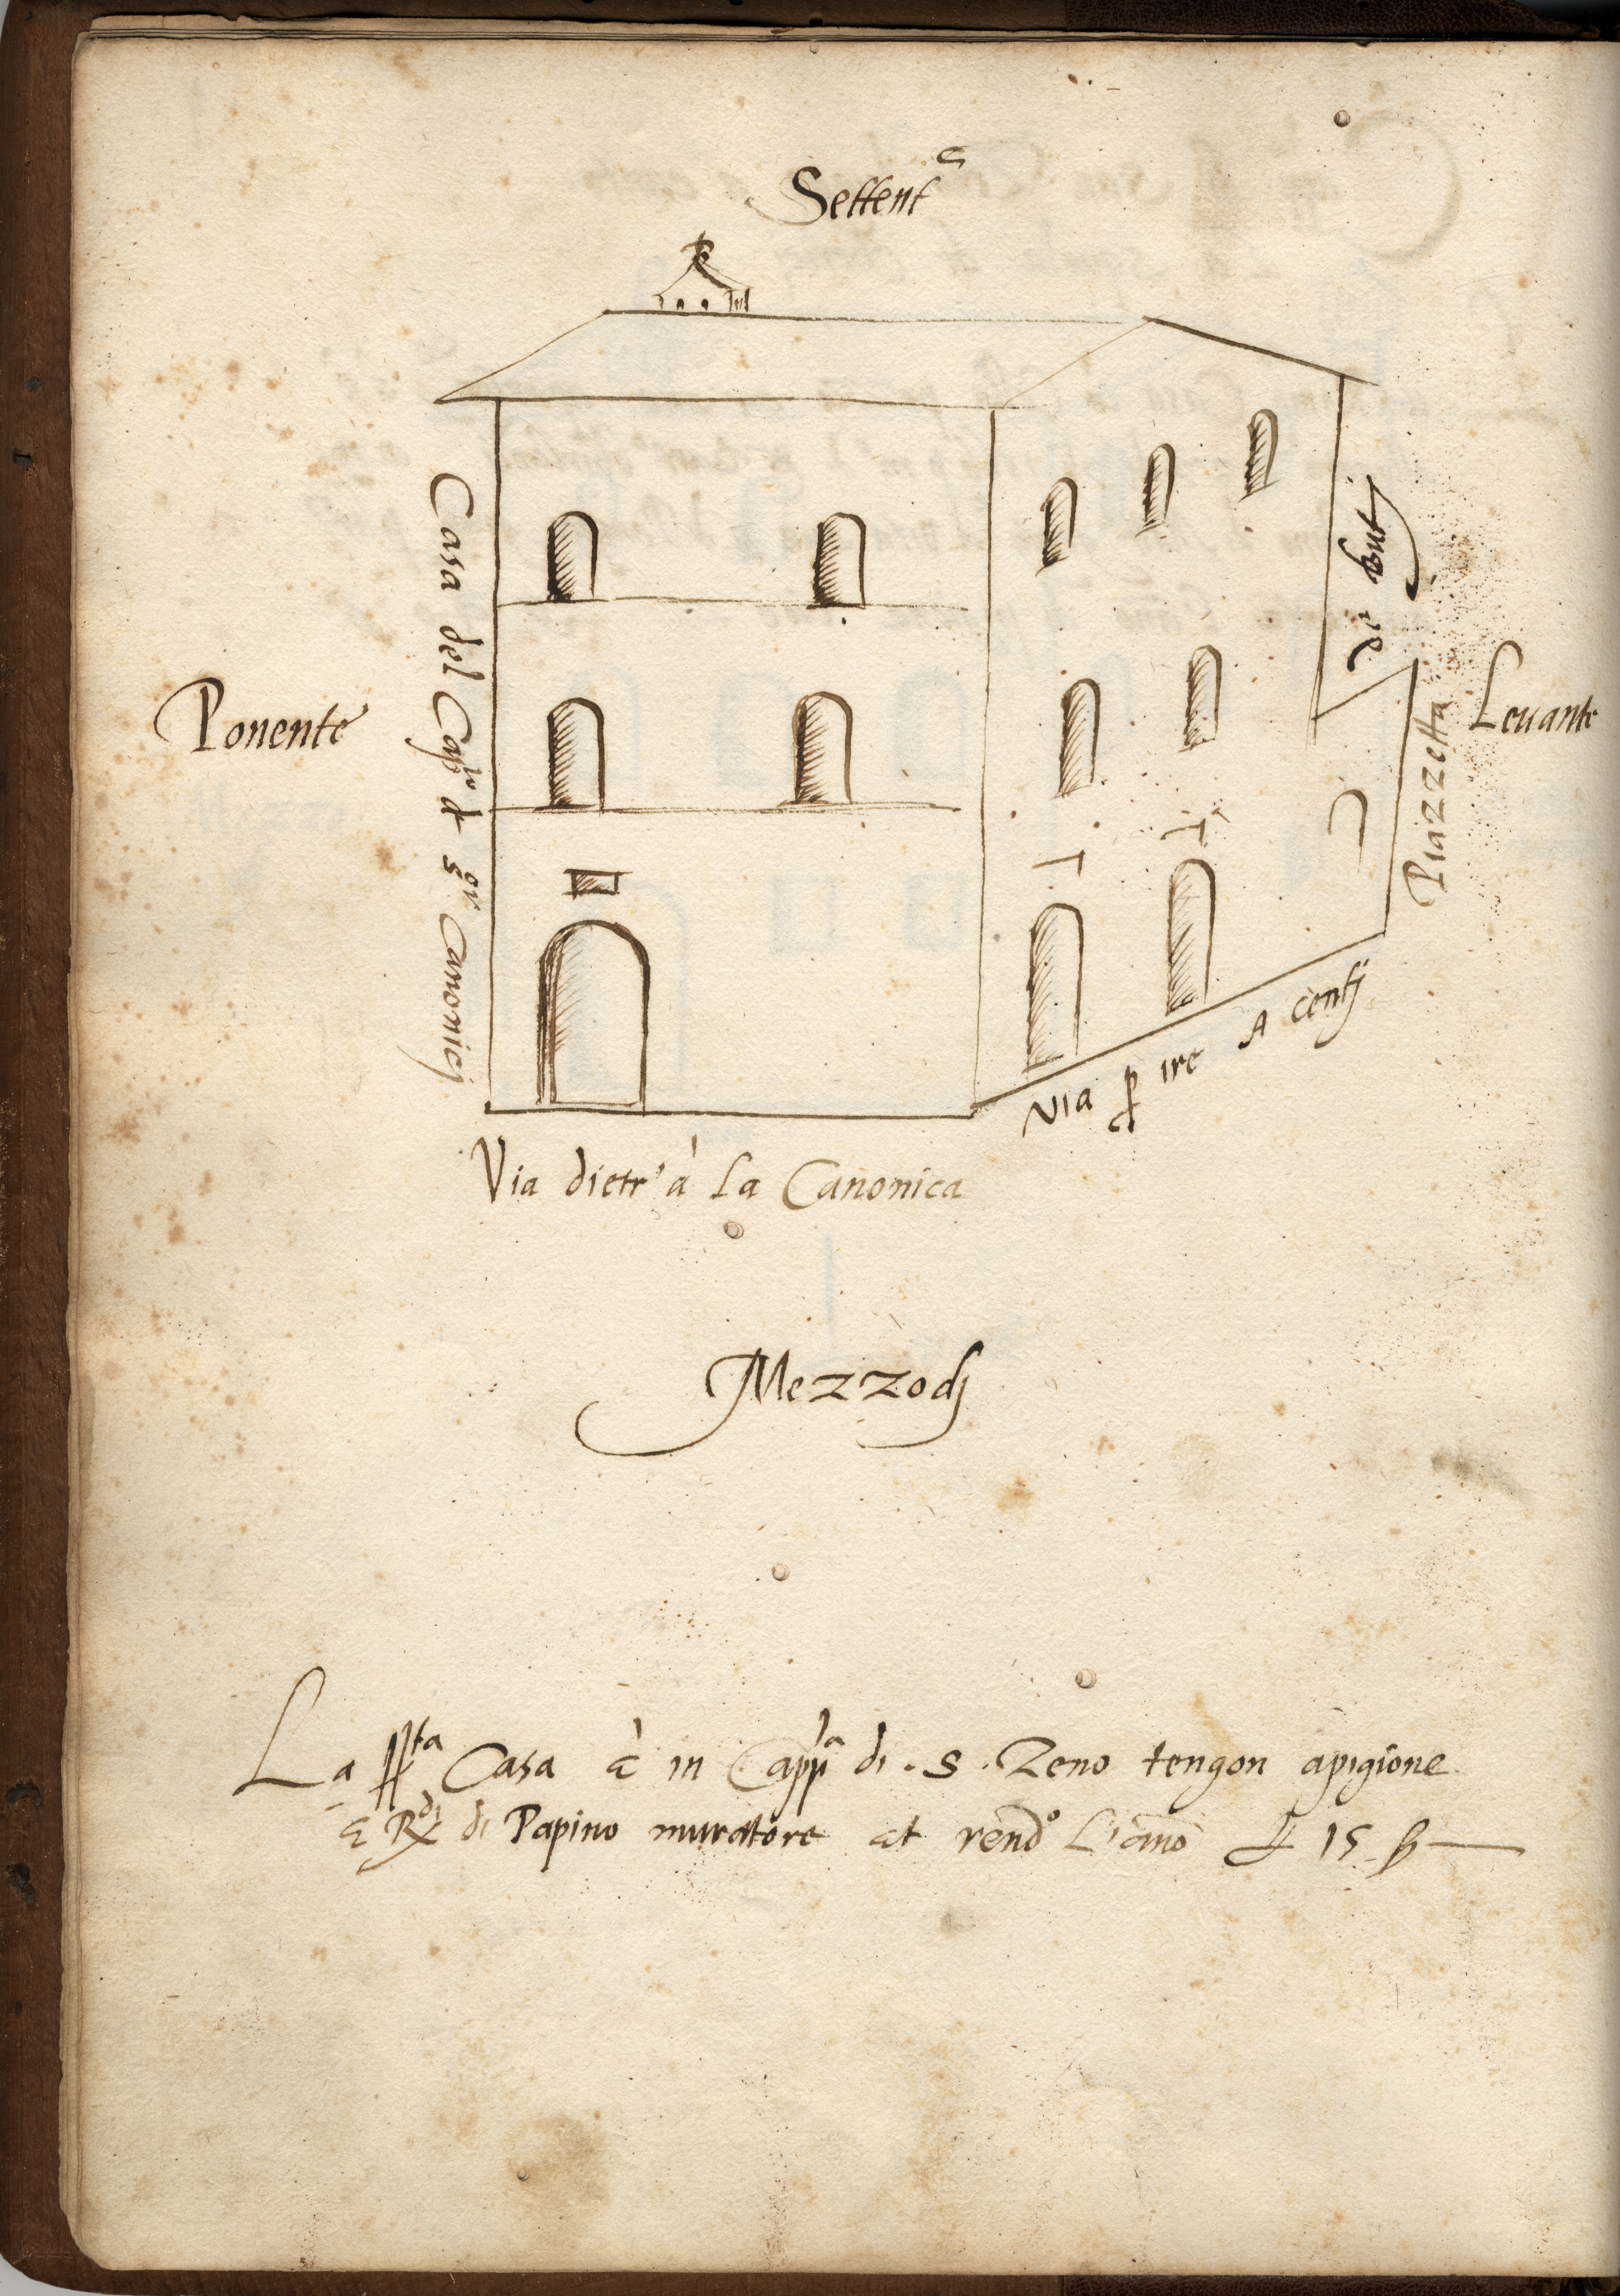 Settent^e
Casa del Cap^lo d s^gri Canonicj
di butj
Ponente
Levante
Piazzetta
Via p ire A centj
Via dietr' à la Canonica
Mezzodj
La ppta Casa è in Capp^a di .S. Zeno tengon apigione
E R^di di Papino muratore et rend^o L'ano £ 15 ß —